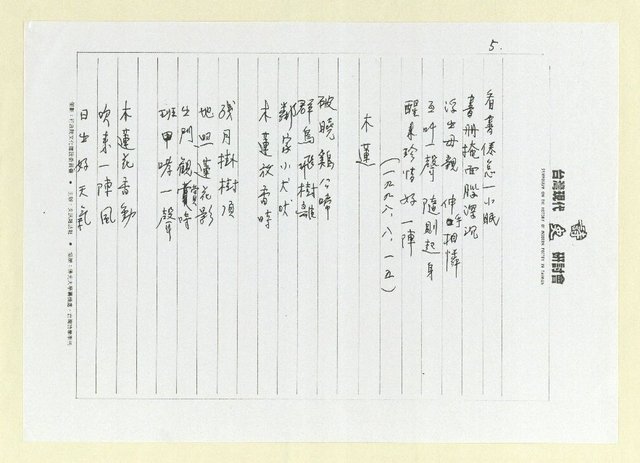 5.
台灣現代詩史研討會
SYMPOSIUM ON THE HISTORY OF MODERN POETRY IN TAIWAN
看書倦怠一小眠
書册掩面腦深沉
浮出母親伸手相憐
叫一聲隨則起身
醒來珍惜好一陣
(一九九六、八、一五)
木蓮
破曉鷄公啼
群鳥飛樹離
鄰家小犬吠
木蓮放香時
殘月掛樹頂
地照蓮花影
出門觀賞時
班甲哮一聲
木蓮花香動
吹來一陣風
日出好天氣